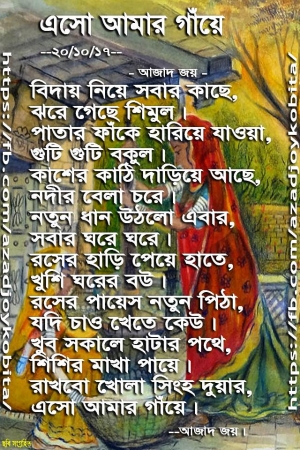 এসো আমার গাঁয়ে
--২০/১০/১৭--
- আজাদ জয় -
বিদায় নিয়ে সবার কাছে,
ঝরে গেছে শিমুল।
পাতার ফাঁকে হারিয়ে যাওয়া,
গুটি গুটি বকুল।
কাশের কাঠি দাড়িয়ে আছে,
নদীর বেলা চরে।
নতুন ধান উঠলো এবার,
সবার ঘরে ঘরে।
রসের হাড়ি পেয়ে হাতে,
খুশি ঘরের বউ।
রসের পায়েস নতুন পিঠা,
যদি চাও খেতে কেউ।
খুব সকালে হাটার পথে,
শিশির মাখা পায়ে।
রাখবো খোলা সিংহ দুয়ার,
এসো আমার গাঁয়ে।
--আজাদ জয়।
https://fb.com/azadjoykobita
https://fb.com/azadjoykobita/
ছবি সংগ্রহিত